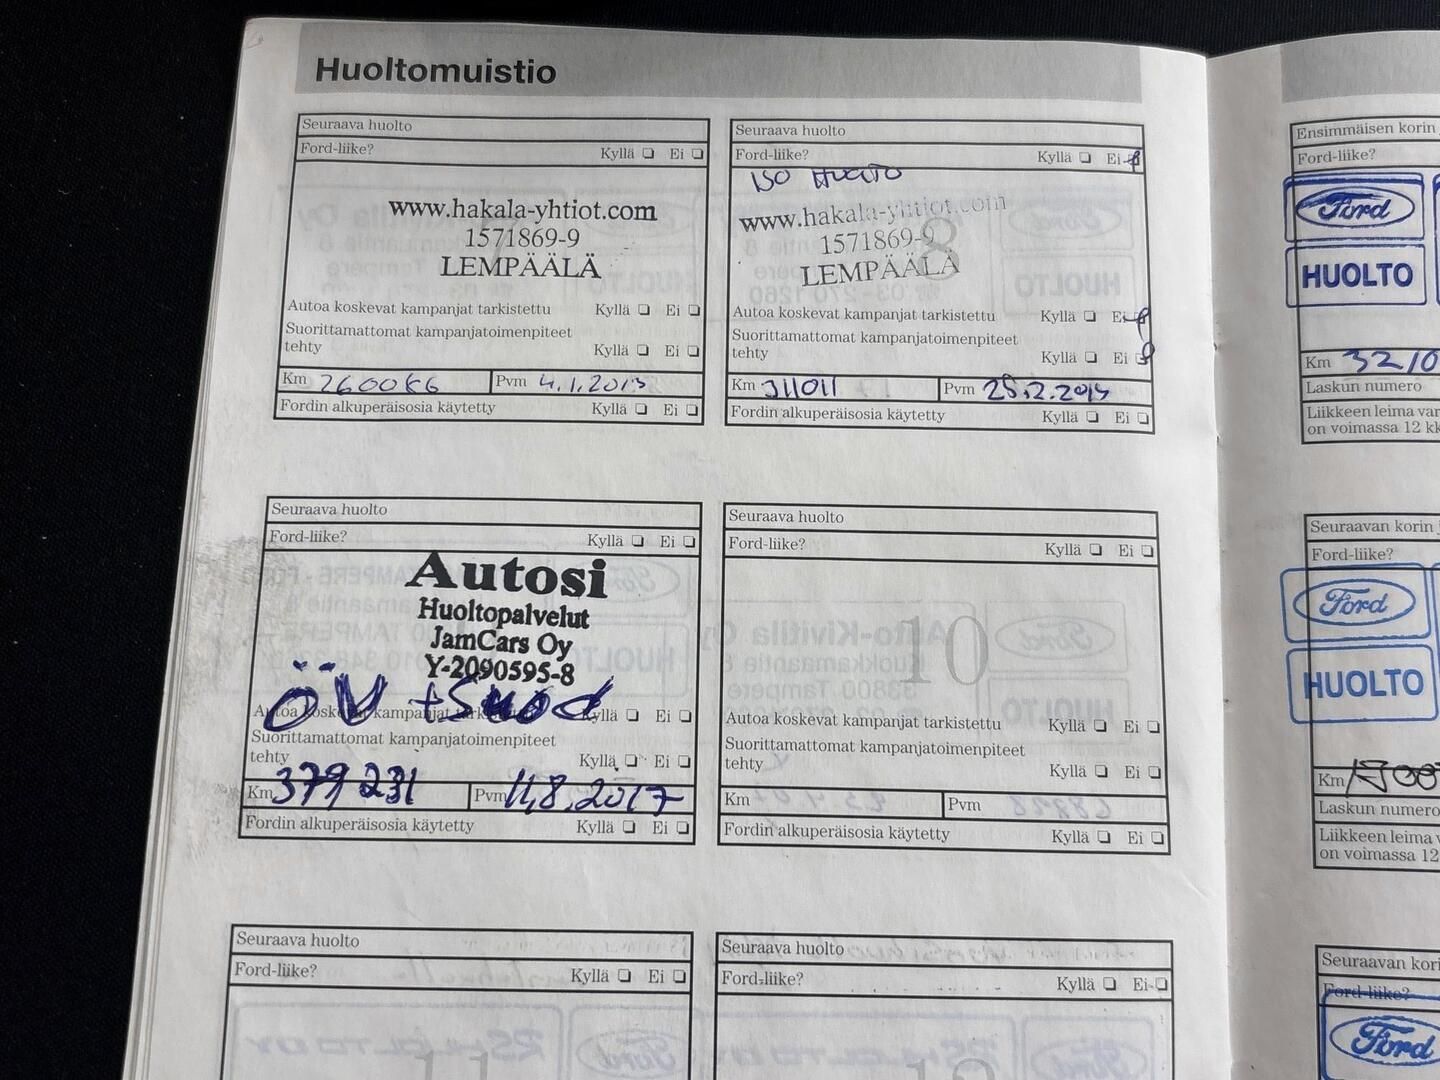 Huoltomuistio
Seuraava huolto
Ford-liike? Kyllä ❏ Ei ❏
www.hakala-yhtiot.com
1571869-9
LEMPÄÄLÄ
Autoa koskevat kampanjat tarkistettu Kyllä ❏ Ei ❏
Suorittamattomat kampanjatoimenpiteet
tehty Kyllä ❏ Ei ❏
Km Pvm
Fordin alkuperäisosia käytetty Kyllä ❏ Ei ❏
Seuraava huolto
Ford-liike? Kyllä ❏ Ei
ISO HUOLTO
www.hakala-yhtiot.com
8
1571869-9
LEMPÄÄLÄ
Autoa koskevat kampanjat tarkistettu Kyllä ❏ Ei
Suorittamattomat kampanjatoimenpiteet
tehty Kyllä ❏ Ei
Km 311011 Pvm
Fordin alkuperäisosia käytetty Kyllä ❏ Ei ❏
Seuraava huolto
Ford-liike? Kyllä ❏ Ei ❏
Autosi
Huoltopalvelut
JamCars Oy
Y-2090595-8
öV + Suod
Autoa koskevat kampanjat tarkistettu Kyllä ❏ Ei ❏
Suorittamattomat kampanjatoimenpiteet
tehty Kyllä ❏ Ei ❏
Km 379 231 Pvm 11.8.2017
Fordin alkuperäisosia käytetty Kyllä ❏ Ei ❏
Seuraava huolto
Ford-liike? Kyllä ❏ Ei ❏
10
Autoa koskevat kampanjat tarkistettu Kyllä ❏ Ei ❏
Suorittamattomat kampanjatoimenpiteet
tehty Kyllä ❏ Ei ❏
Km Pvm
Fordin alkuperäisosia käytetty Kyllä ❏ Ei ❏
Seuraava huolto
Ford-liike? Kyllä ❏ Ei ❏
11
Seuraava huolto
Ford-liike? Kyllä ❏ Ei ❏
12
Ensimmäisen korin
Ford-liike?
Ford
HUOLTO
Km 3210
Laskun numero
Liikkeen leima var
on voimassa 12 kk
Seuraavan korin
Ford-liike?
Ford
HUOLTO
Km
Laskun numero
Liikkeen leima v
on voimassa 12
Seuraavan kori
Ford-liike?
Ford